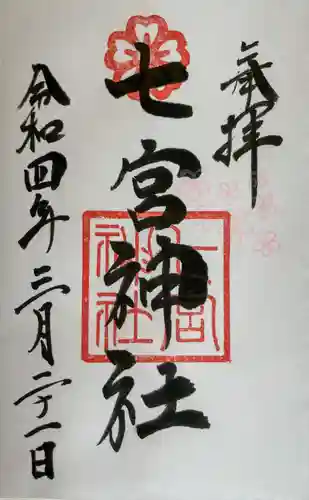 奉拝
七宮神社
令和四年三月二十一日